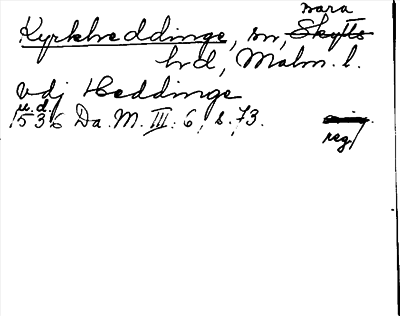 Bara
Kyrkheddinge, sn, Skytts
hd, Malm. l.
vdj Heddinge
u.d.
1536 Da. M. III: 6, s. 73.
reg.